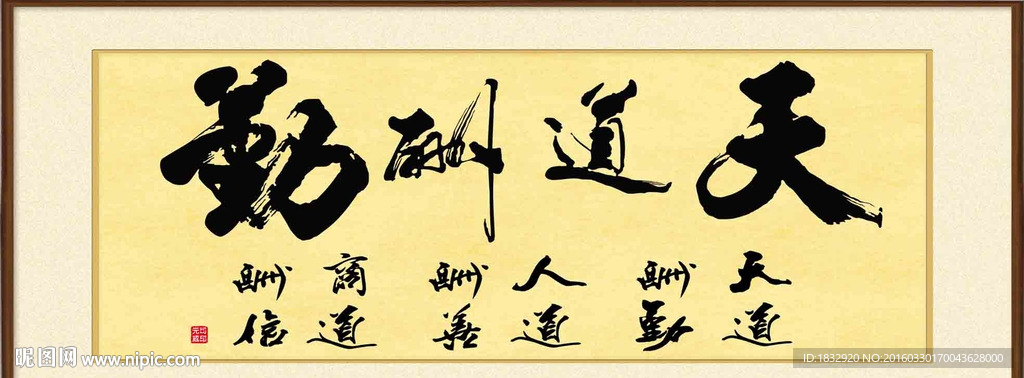 天道酬勤
天道
酬勤
人道
酬善
商道
酬信
昵图网 www.nipic.com
ID:1832920 NO:20160330170043628000